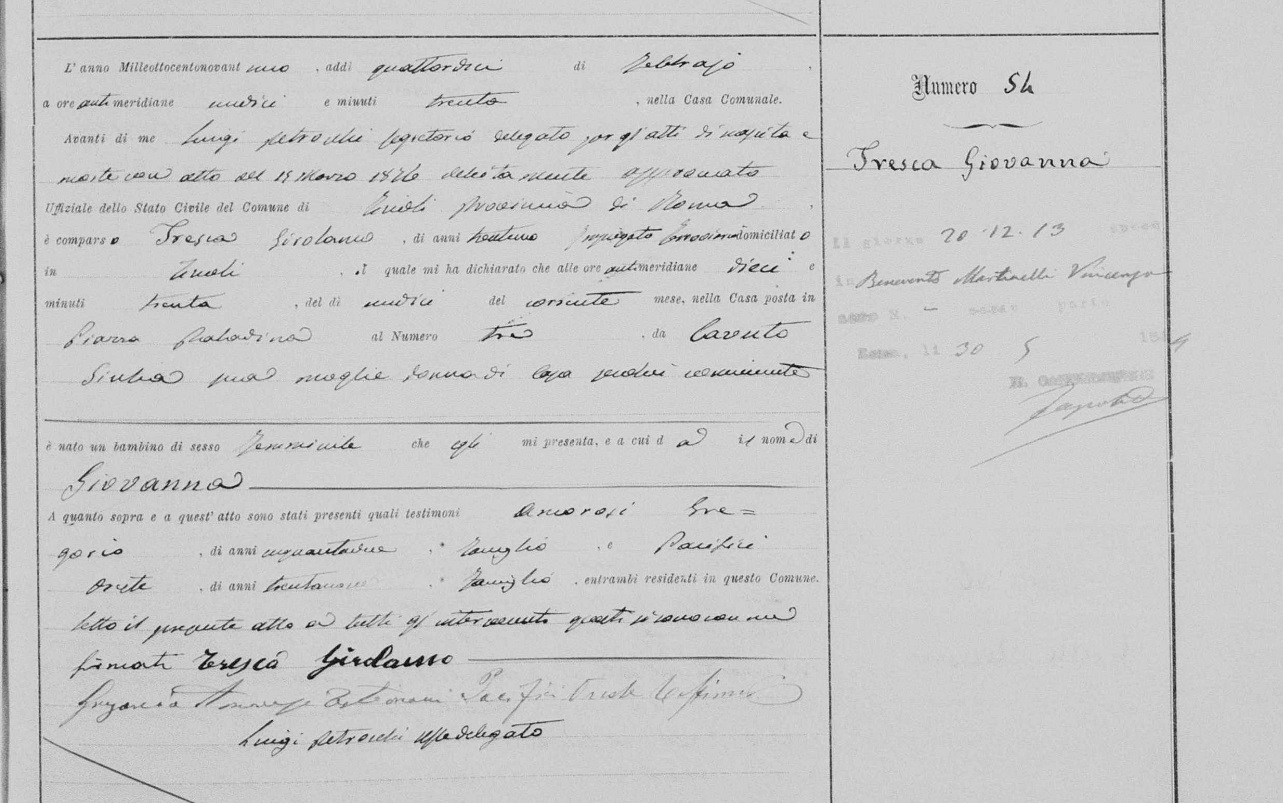 L' anno Milleottocentonovantuno, addì quattordici di Febbrajo,
a ore antimeridiane undici e minuti trenta, nella Casa Comunale.
Avanti di me Luigi Petrocchi Segretario delegato per gli atti di nascita e
morte con atto del Marzo 1876 debitamente approvato
Uffiziale dello Stato Civile del Comune di Tivoli Provincia di Roma.
è comparso Tresca Girolamo, di anni trentuno Impiegato ferroviario domiciliato
in Tivoli, il quale mi ha dichiarato che alle ore antimeridiane dieci e
minuti trenta, del dì undici del corrente mese, nella Casa posta in
Piazza Palatina al Numero tre, da Caruto
sua moglie donna di casa seco lui convivente
è nato un bambino di sesso femminile che egli mi presenta, e a cui dà il nome di
Giovanna
A quanto sopra e a quest' atto sono stati presenti quali testimoni Amorosi Gre=
gorio, di anni cinquantadue, famiglio, e Pacifici
Oreste, di anni trentanove, famiglio, entrambi residenti in questo Comune.
Letto il presente atto a tutti gl'intervenuti questi si sono con me
firmati Tresca Girolamo
Gregorio Amorosi Testimone Pacifici Oreste Testimonio
Luigi Petrocchi Uffle delegato
Numero 54
Tresca Giovanna
Il giorno 20.12.13 sposò
in Benevento Martinelli Vincenzo
atto N. - parte
Roma, li 30 5 1914